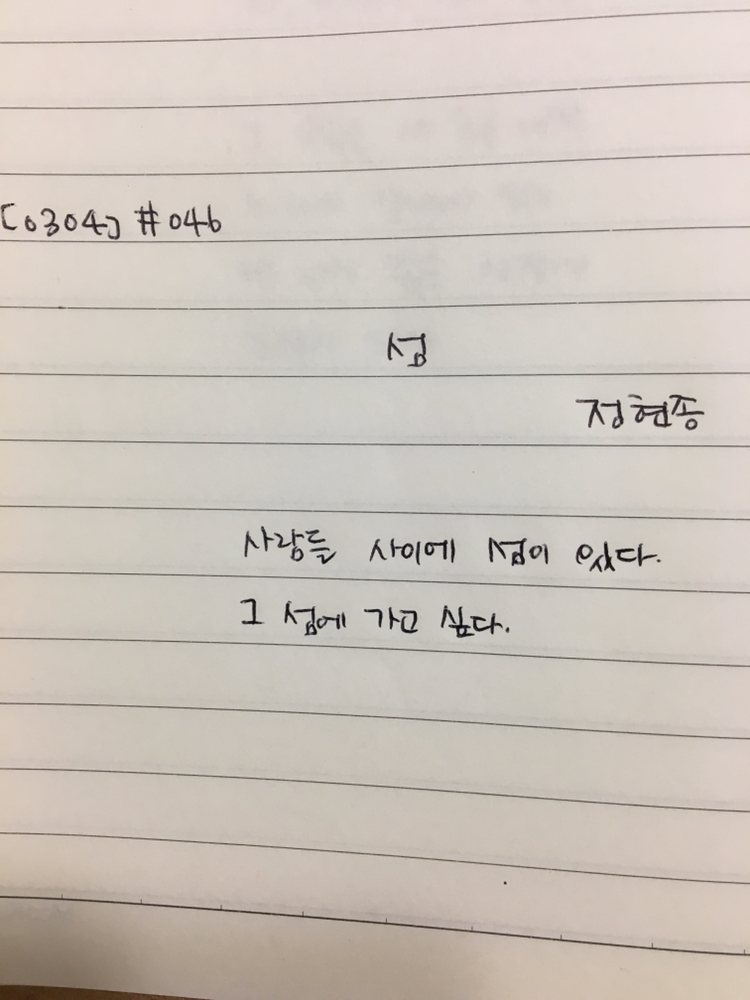 [0304] #046
섬
정현종
사람들 사이에 섬이 있다.
그 섬에 가고 싶다.